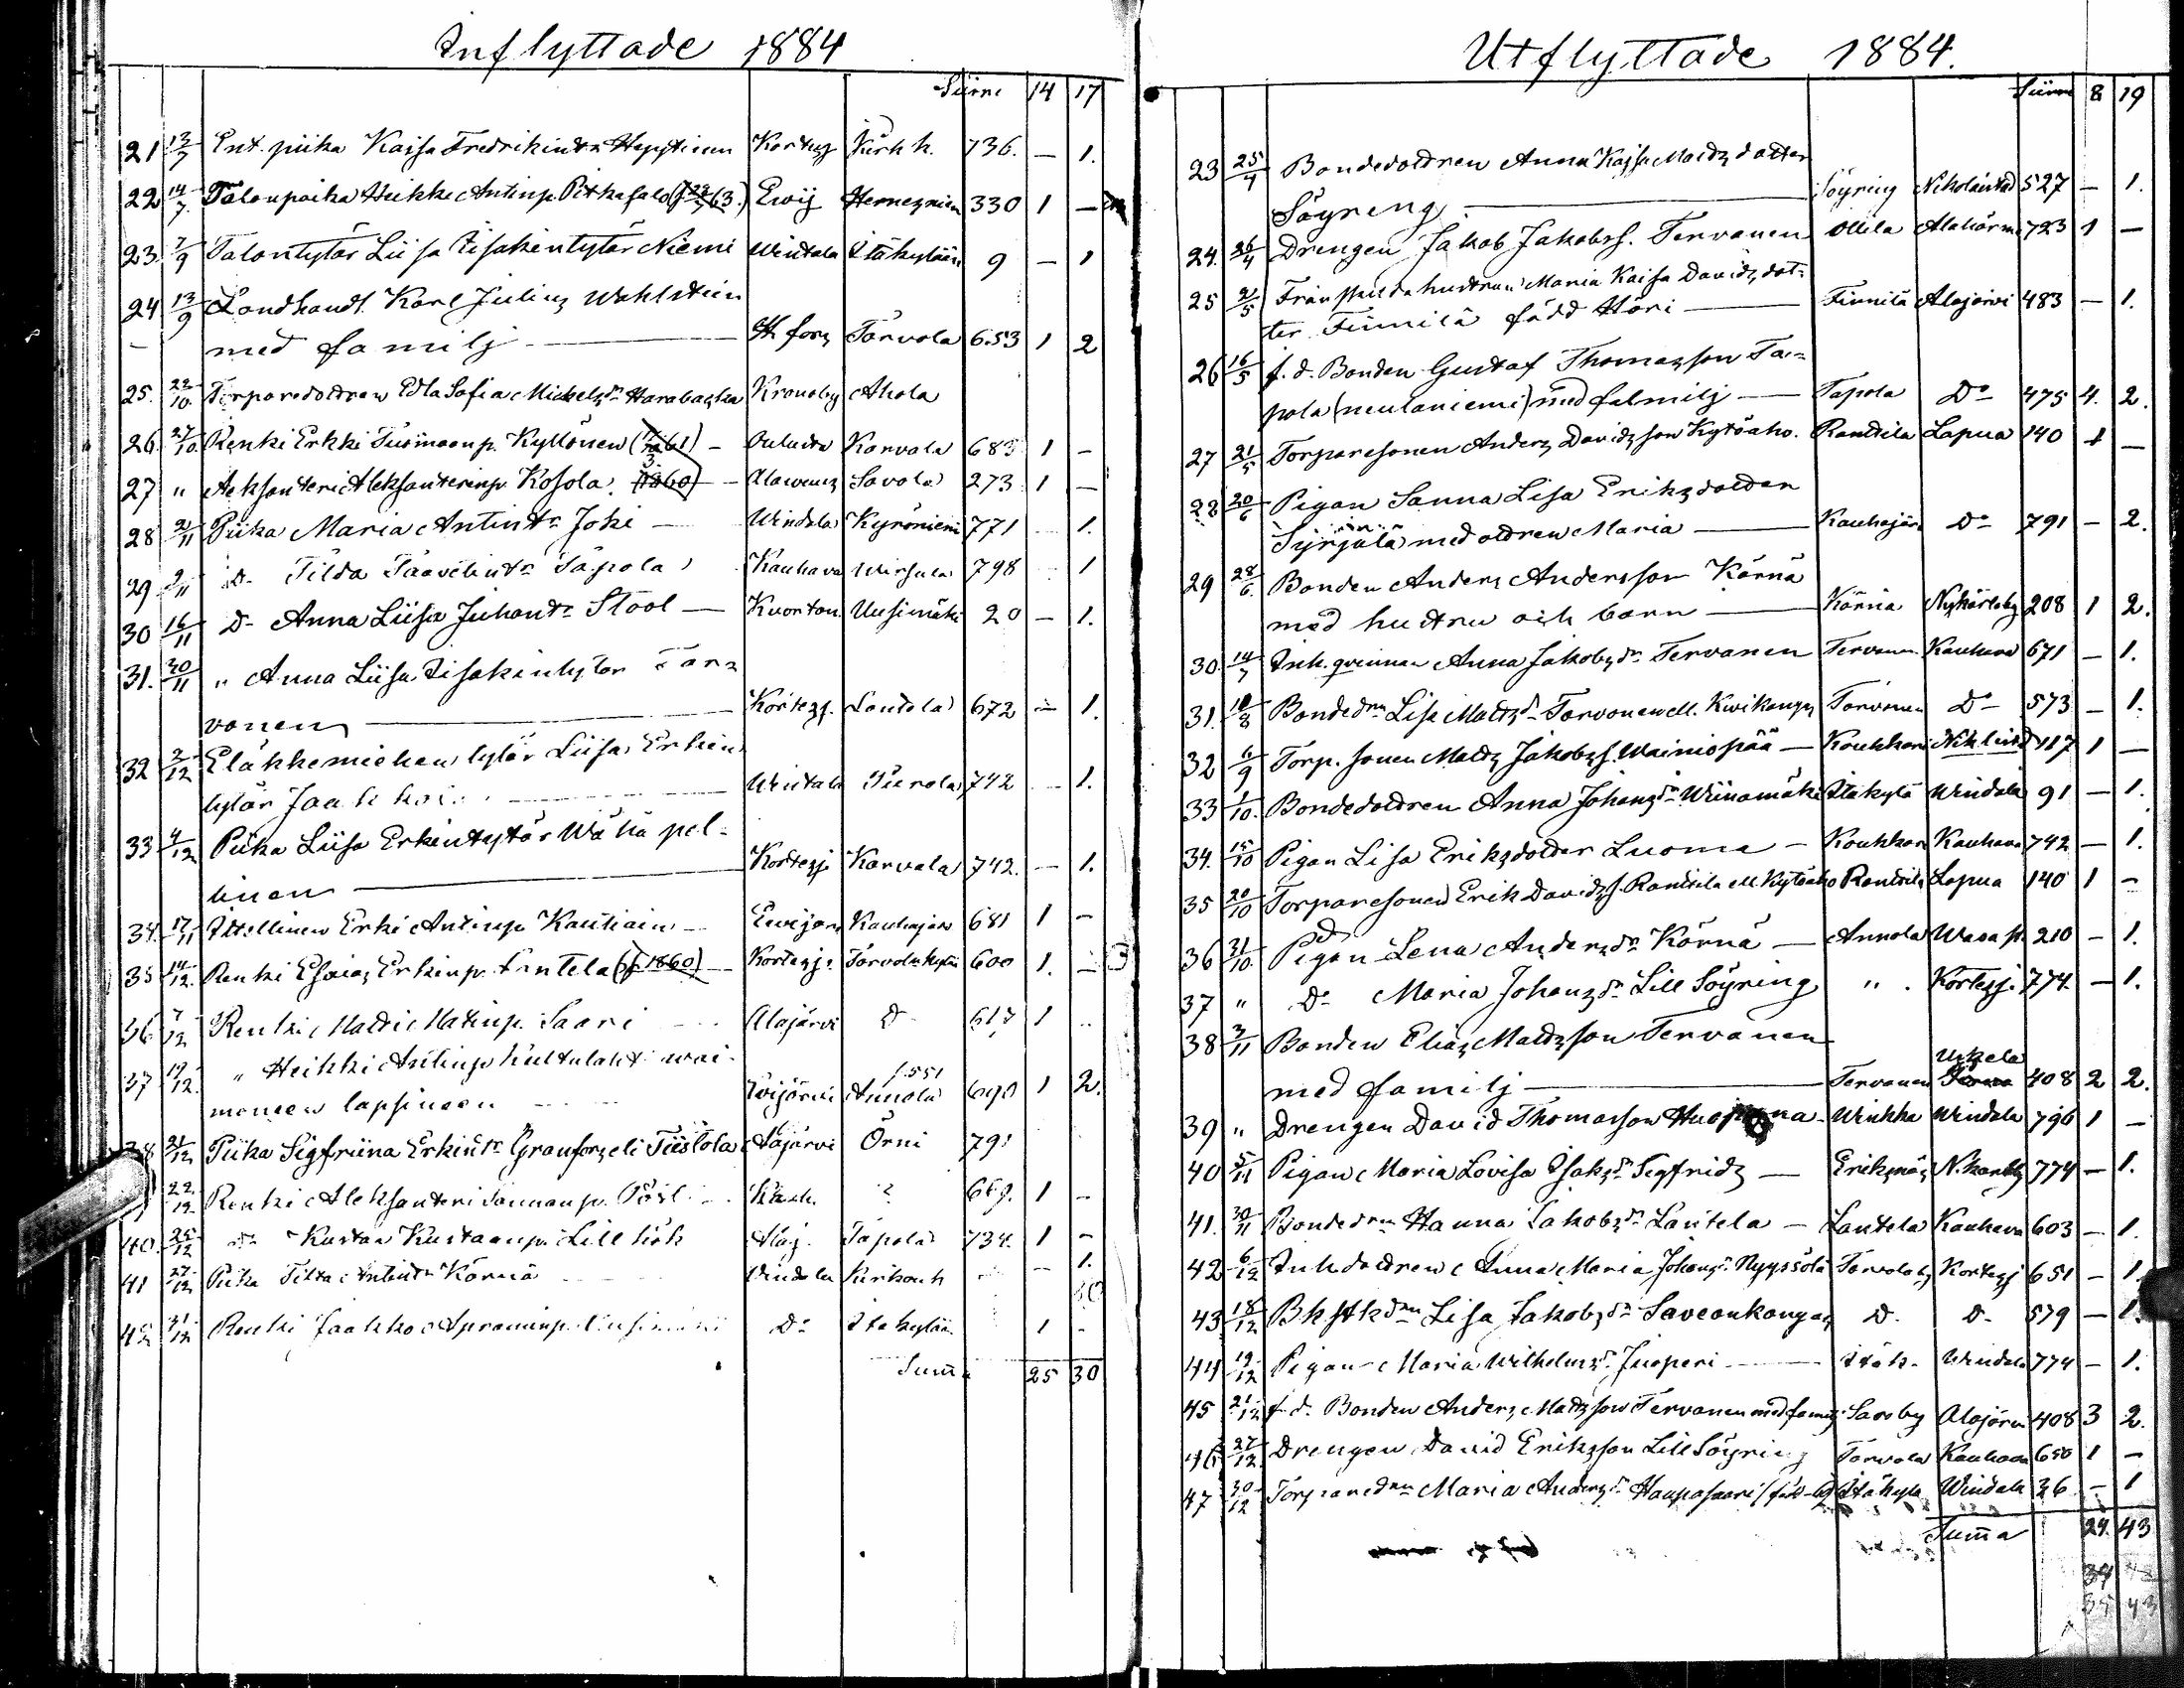 Inflyttade 1884
Siirre 14 17
21 13/7 Ent. piika Kaisa Fredrikint: Hyytinen Kortesj Kirkk. 736. — 1.
22 14/7. Talonpoika Heikki Antinp. Pitkäsalo Ewij Hernesniem 330 1 —
23. 7/9 Talontytär Liisa Iisakintytär Niemi Windala Itäkylään 9 — 1
24 13/9 Landhandl. Karl Julius Wahlstein
med familj — H:fors Tarvola 653 1 2
25. 22/10. Torparedottren Edla Sofia Mickels dr Harabacka Kronoby Ahola
26. 27/10. Renki Erkki Tuomaanp. Kyllönen — Karvala 683 1 —
27 " Aeksanteri Aleksanterinp. Kosola. (1860) — Alawus Savola 273 1 —
28 2/11 Piika Maria Antint: Joki — Windala Kyröniemi 771 — 1.
29 9/11 D:o Tilda Taavetint: Tapola Kauhava Wirsula 798 1
30 16/11 D:o Anna Liisa Juhont: Stool — Kuortan. Uusimäki 20 — 1.
31. 30/11 " Anna Liisa Iisakintytär Tar-
vonen — Kortesj. Lantola 672 — 1.
32 2/12 Eläkkemiehen tytär Liisa Erkin
tytär Jaakkoi Windala 742 — 1.
33 4/12 Piika Liisa Erkintytär Wähäpel-
tinen — Kortesj Karvala 742. — 1.
34. 17/11 Itsellinen Erki Antinp. Kautiain — Ewijärv Kauhajärv 681 1 —
35 14/12. Renki Esaias Erkinp. Lantela (f. 1860) — Kortesj. Tarvola kylä 600 1. —
36 7/12 Renki Matti Matinp. Saari Alajärvi D:o 617 1
37 19/12. " Heikki Antinp. Kultalahti wai-
moneen lapsineen Ewijärvi Annola 690 1 2.
38 21/12 Piika Sigfriina Erkint: Granfors eli Tiistola Alajärvi Örni 791
22/12 Renki Aleksanteri Sannanp. Kauh. ? 669. 1 —
40. 25/12 D:o Kustaa Kustaanp. Lillbäk Alaj. Tapola 734. 1 —
41 27/12 Piika Tilta Antint: Körnä Windala Kirkonk — 1.
42 31/12 Renki Jaakko Apraminp. D:o Itäkylään 1 —
Summa 25 30
Utflyttade 1884.
Siirre 8 19
23 25/4 Bondedottren Anna Kajsa Matts dotter
Söyring — Söyring Nikolaistad 527 — 1.
24. 26/4 Drengen Jakob Jakobss. Tervonen Ollila Alahärm 723 1 —
25 2/5 Frånskilda hustrun Maria Kaisa Davids dot-
ter Finnilä född Höri — Finnilä Alajärvi 483 — 1.
26 16/5 f. d. Bonden Gustaf Thomasson Ta-
pola (neulaniemi) med familj — Tapola D:o 475 4. 2.
27 21/5 Torparesonen Anders Davidsson Kytöaho. Rantila Lapua 140 1 —
28 20/6 Pigan Sanna Lisa Eriksdotter
Syrjälä med dottren Maria — Kauhajärv D:o 791 — 2.
29 28/6. Bonden Anders Andersson Körnä
med hustru och barn — Körnä Nykarleby 208 1 2.
30. 14/7 Inh. qvinnan Anna Jakobs dr Tervonen Tervonen Kauhava 671 — 1.
31. 10/8 Bondedrn Lisa Matts dr Tarvonen ell. Kivikangas Tarvonen D:o 573 — 1.
32 6/9 Torp. sonen Matts Jakobs s. Wainiopää — Koukkari Niklstd 117 1 —
33 1/10. Bondedottren Anna Johans dr Wiinamäki Itäkylä Windala 91 — 1.
34. 15/10 Pigan Lisa Eriksdotter Luoma — Koukkari Kauhava 742 — 1.
35 20/10 Torparesonen Erik Davids s. Rantila ell Kytöaho Rantila Lapua 140 1 —
36 31/10. Pigan Lena Anders dr Körnä — Annola Wasa st. 210 — 1.
37 " D:o Maria Johans dr Lill Söyring " . Kortesj. 774. — 1.
38 3/11 Bonden Elias Mattsson Tervonen
med familj — Tervonen 408 2 2.
39 " Drengen David Thomasson Winkka Windala 796 1 —
40 5/11 Pigan Maria Lovisa Isaks dr Segfrids — Eriksnäs N.karlby 774 — 1.
41. 30/11 Bondedrn Hanna Jakobs dr Lantela — Lantela Kauhava 603 — 1.
42 6/12 Inh dottren Anna Maria Johans dr Nyyssölä Tarvola by Kortesj 651 — 1.
43 18/12 Lisa Jakobs dr Saveonkangas D:o D:o 579 — 1.
44 19/12 Pigan Maria Wilhelms dr Juoperi — Itäk. Windala 774 — 1.
45 21/12 f. d. Bonden Anders Mattsson Tervonen med familj Saroby Alajärvi 408 3 2.
46 27/12. Drengen David Eriksson Lill Söyring Tarvola Kauhava 650 1 —
47 30/12 Torparedrn Maria Anders dr Haapasaari Itäkylä Windala 26 — 1
Summa 24. 43
34
35 43